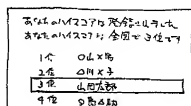 あなたのハイスコアは発給に出ました
あなたのハイスコアは全国で3位です
1位 〇山×男
2位 〇川×子
3位 山田太郎
4位